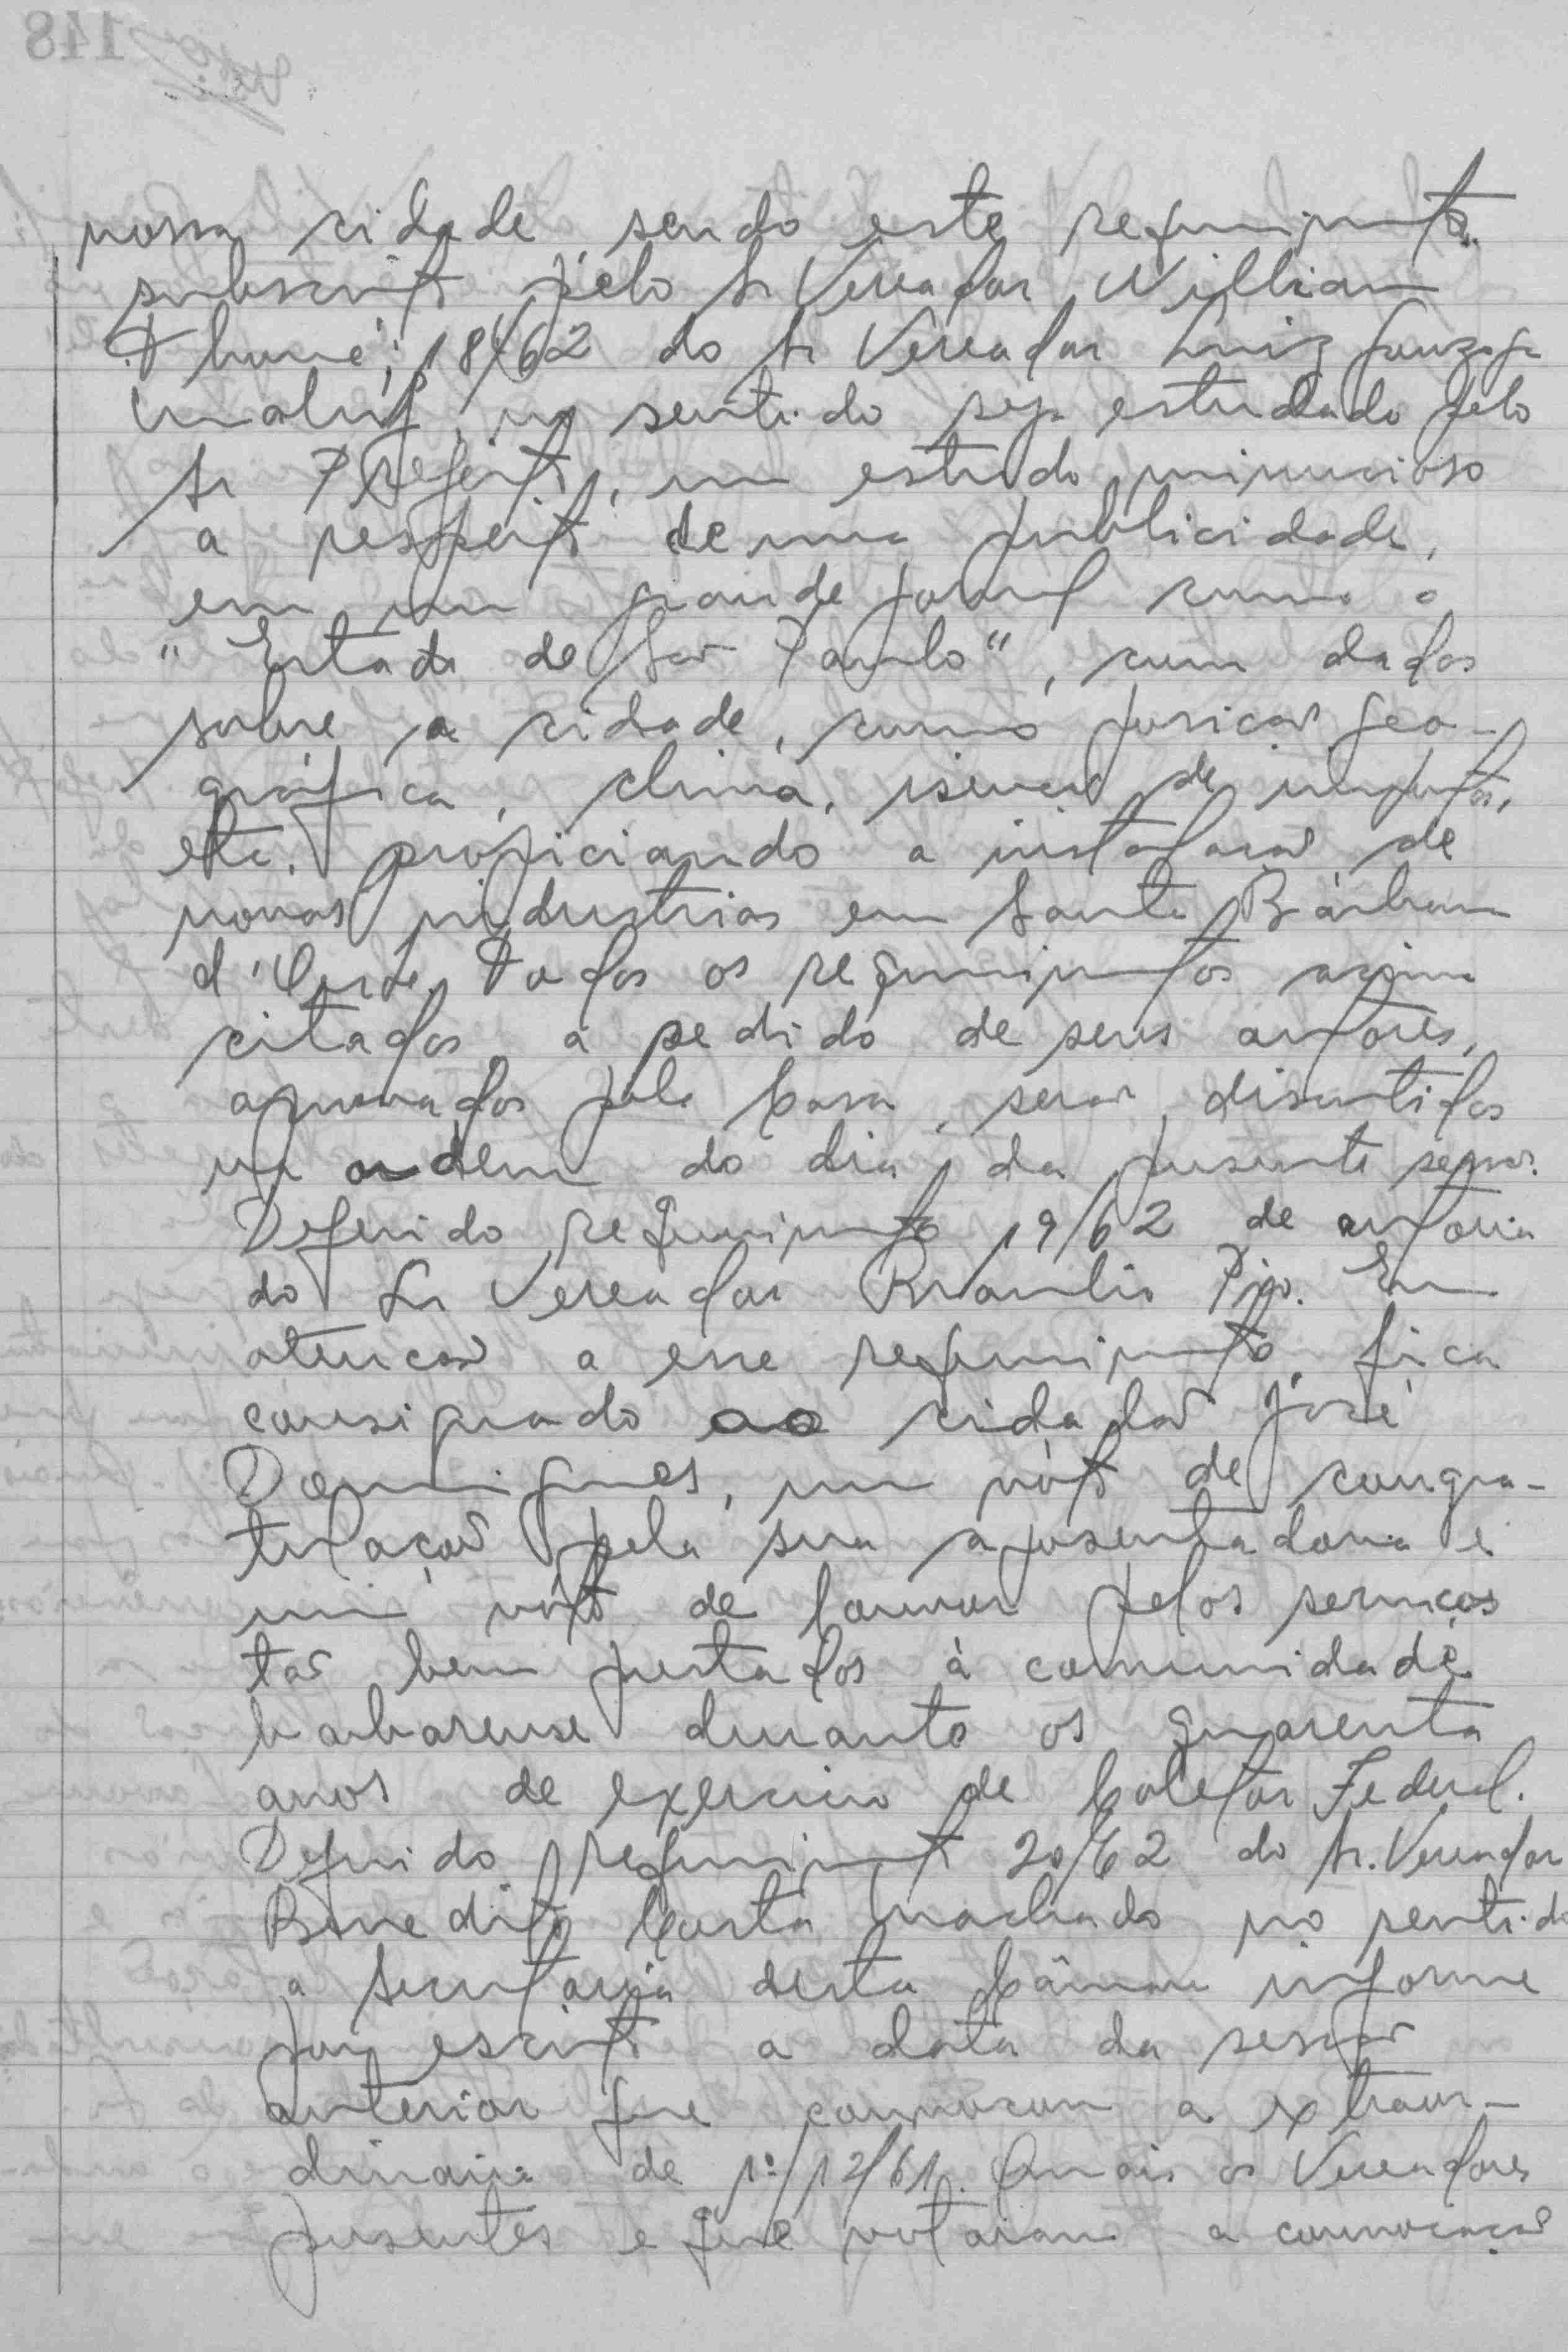 nossa cidade, sendo este requerimento
subscrito pelo Sr Vereador Willian
18/62 do Sr Vereador Luiz Gonzaga
no sentido seja estudado pelo
Sr Prefeito, um estudo minucioso
a respeito de uma publicidade,
em um grande jornal como o
"Estado de São Paulo", com dados
sobre a cidade, como posicao geo-
gráfica, clima, isencao de impostos,
etc. propiciando a instalacao de
novas industrias em Santa Bárbara
d'Oeste. Todos os requerimentos acima
citados, a pedido de seus autores,
aprovados pela Casa, serao discutidos
na ordem do dia da presente sessao.
Deferido requerimento 19/62 de autoria
do Sr Vereador Braulio Pio. Em
atencao a esse requerimento, fica
consignado ao cidadao José
Domingues, um vóto de congra-
tulaçao pela sua aposentadoria e
um vóto de louvor pelos servicos
tao bem prestados à comunidade
barbarense durante os quarenta
anos de exercicio de Coletor Federal.
Deferido requerimento 20/62 do Sr. Vereador
Benedito Costa Machado no sentido
a Secretaria desta Câmara informe
por escrito a data da sessao
anterior que convocou a extraor-
dinaria de 1º/12/61. Quais os Vereadores
presentes e que votaram a convocaçao